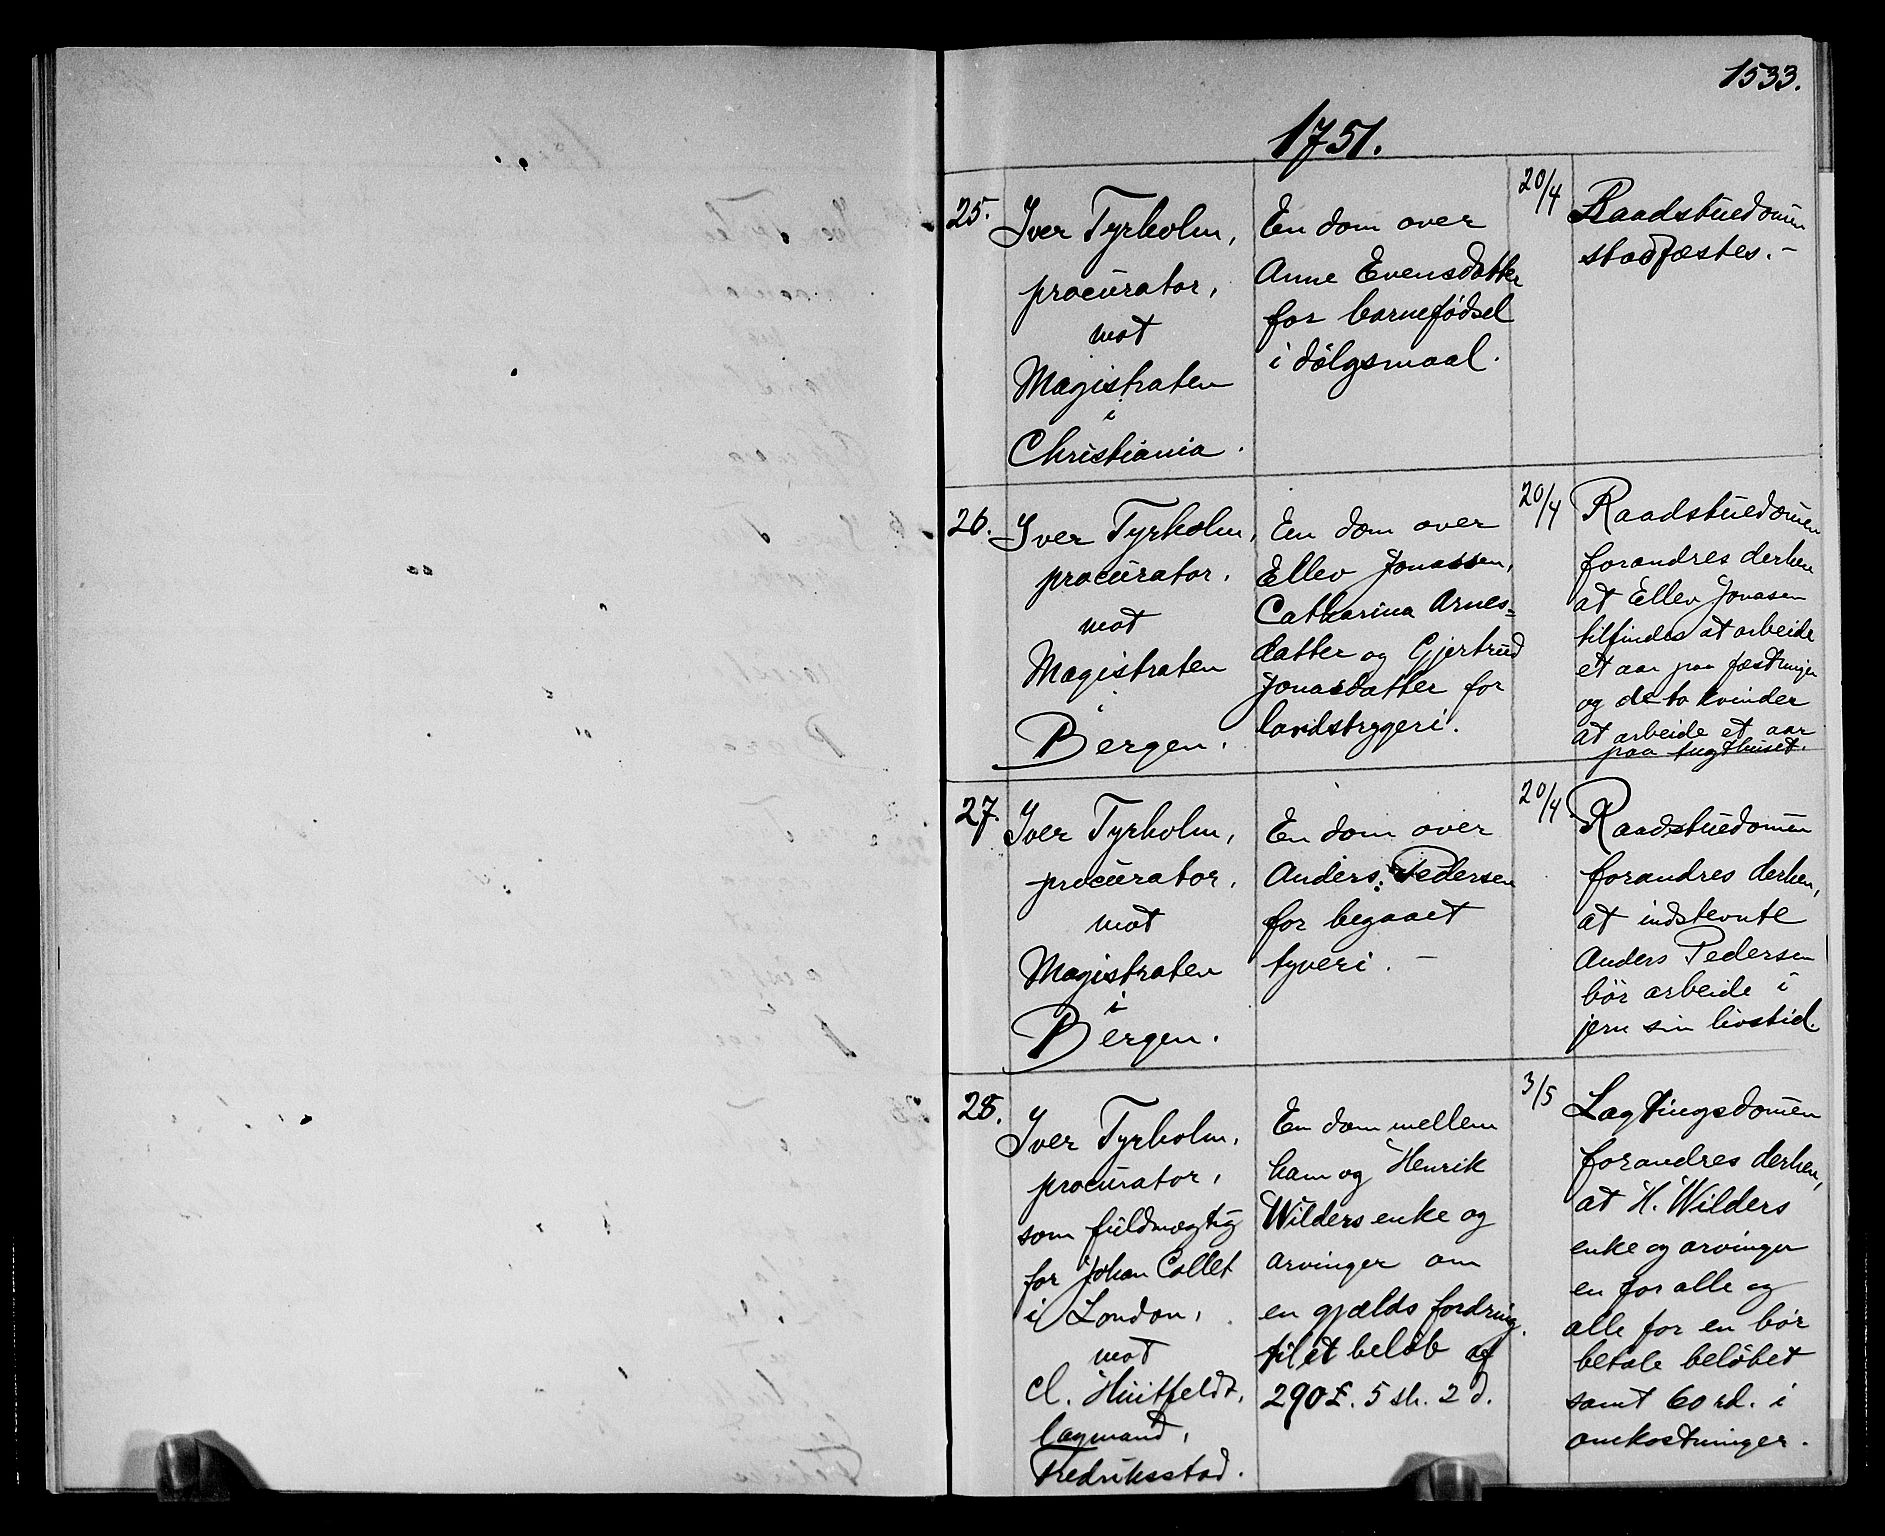 1533.
1751.
25.
Iver Tyrholm,
procurator,
mot
Magistraten
i
Christiania.
En dom over
Anne Evensdatter
for barnefødsel
i dølgsmaal.
20/4
Raadstuedomen
stadfæstes.-
26.
Iver Tyrholm,
procurator.
mot
Magistraten
i
Bergen.
En dom over
Ellev Jonassen,
Catharina Arnes=
datter og Gjertrud
Jonasdatter for
landstrygeri.
20/4
Raadstuedomen
forandres derhen
at Ellev Jonasen
tilfindes at arbeide
et aar paa fæstninger
og de to kvinder
at arbeide et aar
paa tugthuset.
27.
Iver Tyrholm,
procurator.
mot
Magistraten
i
Bergen.
En dom over
Anders Pedersen
for begaaet
tyveri.-
20/4
Raadstuedomen
forandres derhen,
at indstevnte
Anders Pedersen
bör arbeide i
jern sin livstid.
28.
Iver Tyrholm,
procurator,
som fuldmægtig
for Johan Collet
i London,
mot
Cl. Huitfeldt,
lagmand,
Fredriksstad.
En dom mellem
ham og Henrik
Wilders enke og
arvinger om
en gjælds fordring
til et beløb af
290£. 5 sh. 2 d.
3/5
Lagtingsdomen
forandres derhen,
at H. Wilders
enke og arvinger
en for alle og
alle for en bör
betale beløbet
samt 60 rd. i
omkostninger.